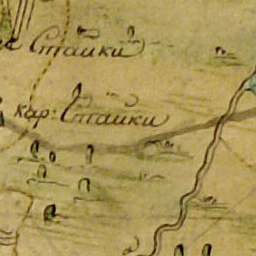 Стайки
кар: Стайки